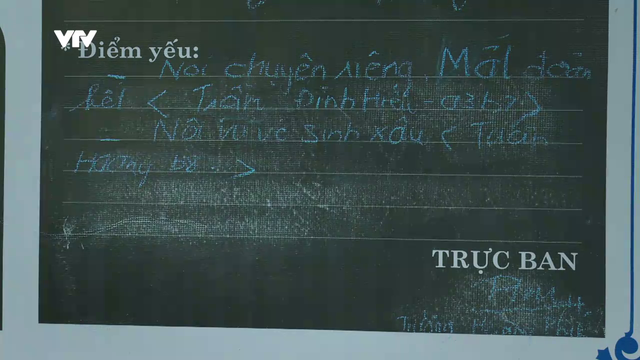 VTV
Điểm yếu:
_ Nói chuyện riêng, Mất đoàn
kết < Trần Đình Hiếu - a3b7 >
- Nội vụ vệ sinh xấu < Tuấn
Hương b8 >
TRỰC BAN